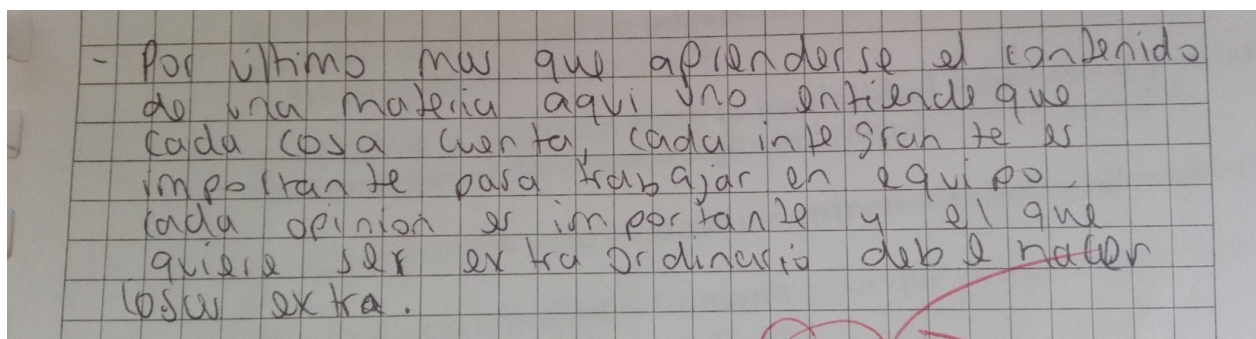 - Por último mas que aprenderse el contenido
de una materia aqui uno entiende que
cada cosa cuenta, cada integrante es
importante para trabajar en equipo,
cada opinion es importante y el que
quiere ser extraordinario debe hacer
cosas extra.